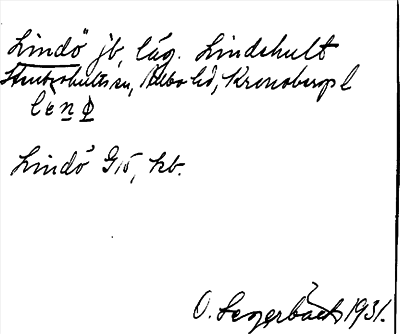 Lindö jb, läg. Lindshult
Stenbrohults sn, Allbo hd, Kronobergs l
lenø
Lindö G15, kb.
O. Segerbäck 1931.